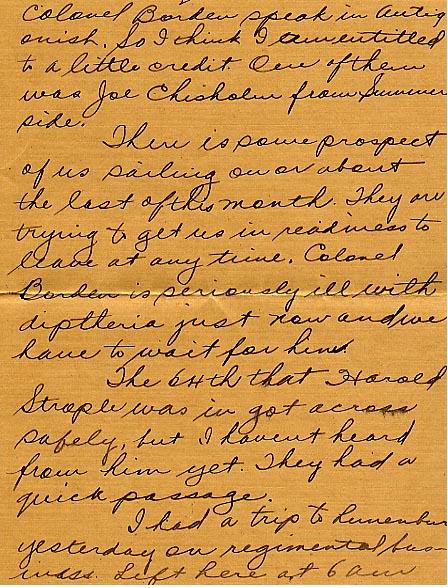 Colonel Borden speak in Antig
onish. So I think I am entitled
to a little credit. One of them
was Joe Chisholm from Summer
side.
There is some prospect
of us sailing on or about
the last of this month. They are
trying to get us in readiness to
leave at any time. Colonel
Borden is seriously ill with
diptheria just now and we
have to wait for him.
The 64th that Harold
Strople was in got across
safely, but I havent heard
from him yet. They had a
quick passage.
I had a trip to Lunenburg
yesterday on regimental bus
iness. Left here at 6 am